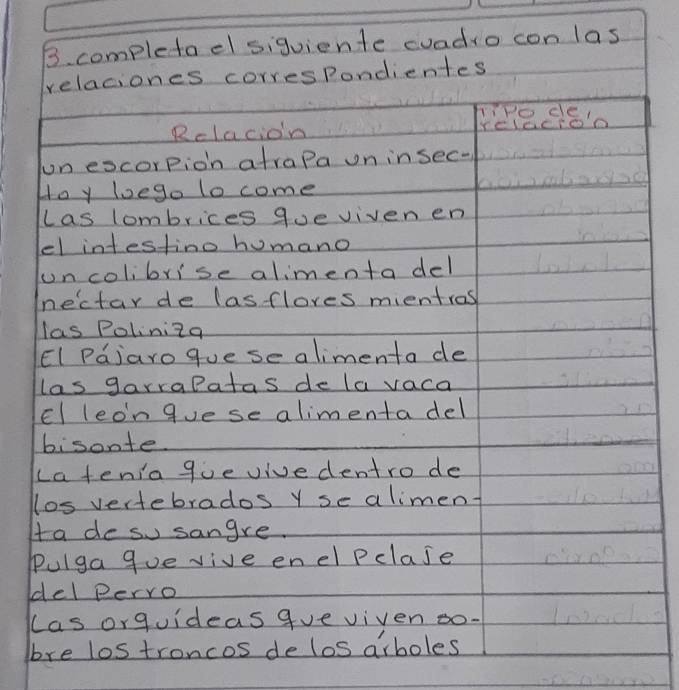 3. completa el siguiente cuadro con las
relaciones correspondientes
Relación
Tipo de
relación
un escorpión atrapa un insec-
to y luego lo come
Las lombrices que viven en
el intestino humano
un colibrí se alimenta del
néctar de las flores mientras
las Poliniza
El Pájaro que se alimenta de
las garrapatas de la vaca
el león que se alimenta del
bisonte.
La tenía que vive dentro de
los vertebrados y se alimen-
ta de su sangre.
Pulga que vive en el Pelaje
del Perro
Las orquídeas que viven so-
bre los troncos de los árboles